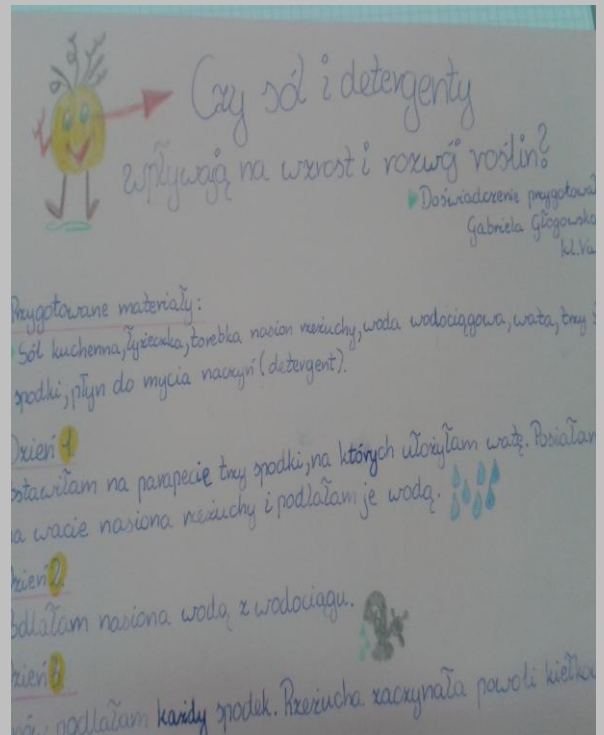 Czy sól i detergenty
wpływają na wzrost i rozwój roślin?
Doświadczenie przygotowa
Gabriela Głogowska
kl.VIa
Przygotowane materiały:
Sól kuchenna, łyżeczka, torebka nasion rzeżuchy, woda wodociągowa, wata, trzy
spodki, płyn do mycia naczyń (detergent).
Dzień 1
ostawiłam na parapecie trzy spodki, na których ułożyłam watę. Posiałam
a wacie nasiona rzeżuchy i podlałam je wodą.
zień 2
odlałam nasiona wodą z wodociągu.
zień 3
podlałam każdy spodek. Rzeżucha zaczynała powoli kiełkow